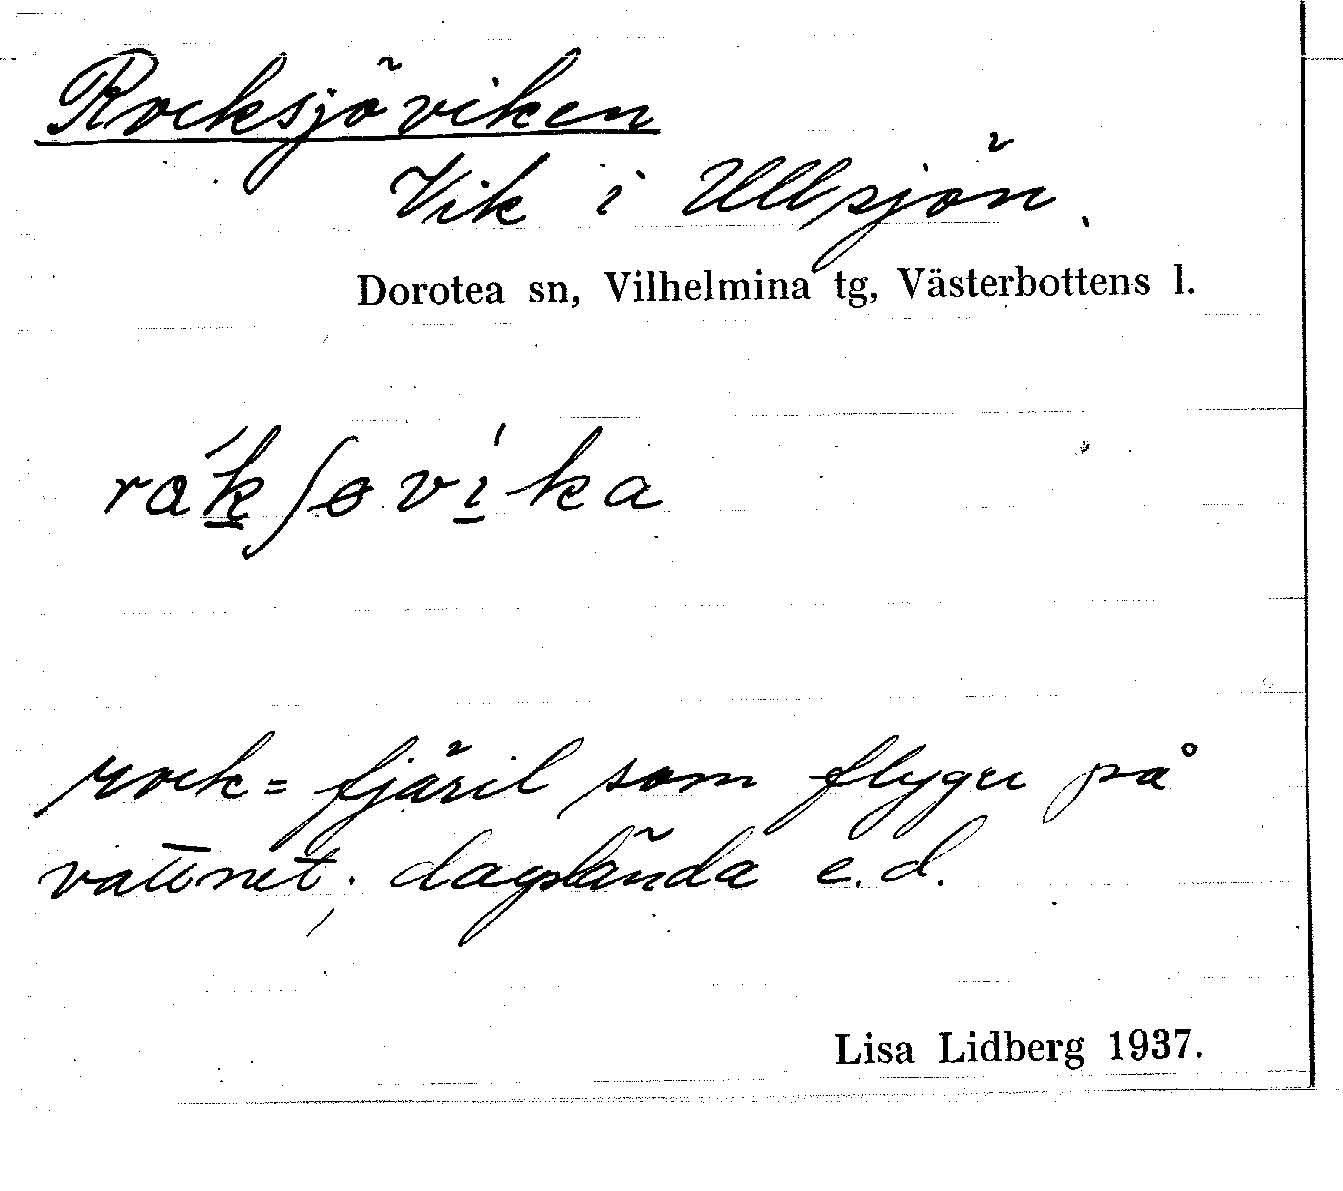 Rocksjöviken
Vik i Ullsjön.
Dorotea sn, Vilhelmina tg, Västerbottens l.
rák̲ʃɵvı̲́ka
rock = fjäril som flyger på
vattnet; dagslända e.d.
Lisa Lidberg 1937.